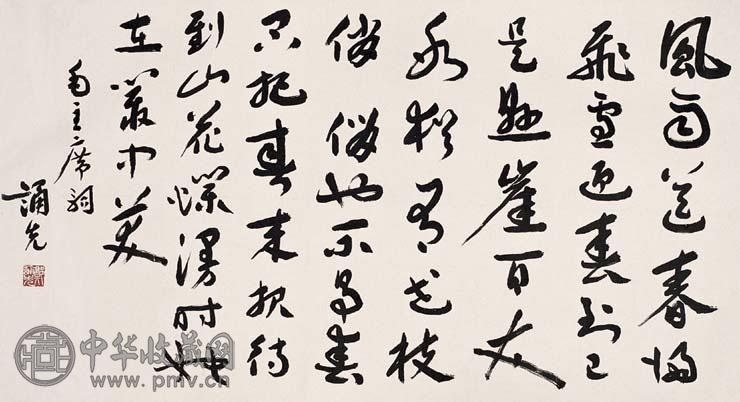 風雨送春歸
飛雪迎春到已
是懸崖百丈
冰猶有花枝
俏俏也不爭春
只把春來報待
到山花爛漫時她
在叢中笑
毛主席詞
誦先
中华收藏网
www.pmv.cn